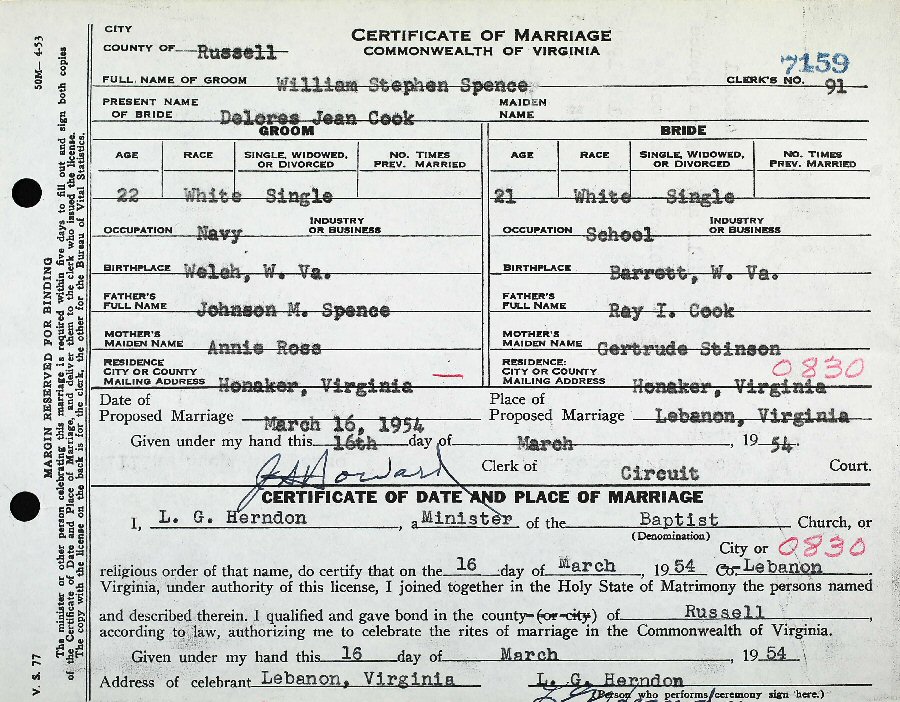 CITY
COUNTY OF Russell
CERTIFICATE OF MARRIAGE
COMMONWEALTH OF VIRGINIA
7159
FULL NAME OF GROOM William Stephen Spence CLERK'S NO. 91
PRESENT NAME OF BRIDE Delores Jean Cook MAIDEN NAME
GROOM BRIDE
AGE RACE SINGLE, WIDOWED, OR DIVORCED NO. TIMES PREV. MARRIED AGE RACE SINGLE, WIDOWED, OR DIVORCED NO. TIMES PREV. MARRIED
22 White Single 21 White Single
OCCUPATION Navy INDUSTRY OR BUSINESS OCCUPATION School INDUSTRY OR BUSINESS
BIRTHPLACE Welch, W. Va. BIRTHPLACE Barrett, W. Va.
FATHER'S FULL NAME Johnson M. Spence FATHER'S FULL NAME Ray I. Cook
MOTHER'S MAIDEN NAME Annie Rose MOTHER'S MAIDEN NAME Gertrude Stinson
RESIDENCE CITY OR COUNTY MAILING ADDRESS Honaker, Virginia — RESIDENCE: CITY OR COUNTY MAILING ADDRESS Honaker, Virginia 0830
Date of Proposed Marriage March 16, 1954 Place of Proposed Marriage Lebanon, Virginia
Given under my hand this 16th day of March, 19 54.
Howard Clerk of Circuit Court.
CERTIFICATE OF DATE AND PLACE OF MARRIAGE
I, L. G. Herndon, a Minister of the Baptist Church, or
(Denomination)
City or 0830
religious order of that name, do certify that on the 16 day of March, 19 54 Co. Lebanon
Virginia, under authority of this license, I joined together in the Holy State of Matrimony the persons named
and described therein. I qualified and gave bond in the county (or city) of Russell,
according to law, authorizing me to celebrate the rites of marriage in the Commonwealth of Virginia.
Given under my hand this 16 day of March, 19 54
Address of celebrant Lebanon, Virginia L. G. Herndon
(Person who performs ceremony sign here.)
50M—4-53
V. S. 77
MARGIN RESERVED FOR BINDING
The minister or other person celebrating this marriage is required within five days to fill out and sign both copies
of the Certificate of Date and Place of Marriage, and deliver them to the clerk who issued the license.
The copy with the license on the back is for the clerk, the other for the Bureau of Vital Statistics.